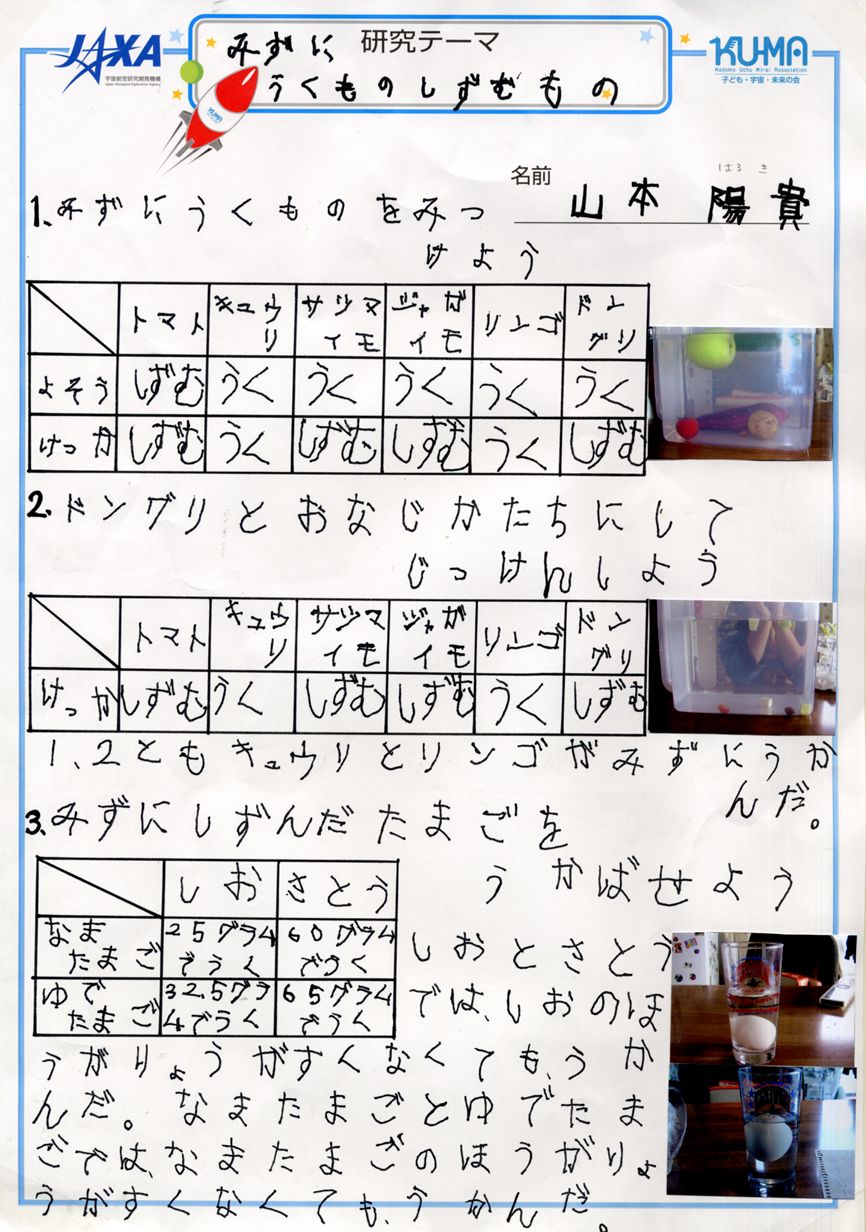 JAXA
宇宙航空研究開発機構
Japan Aerospace Exploration Agency
研究テーマ
みずに
うくものしずむもの
KUMA
KU-MA
Kodomo Uchu Mirai Association
子ども・宇宙・未来の会
名前
はる き
山本 陽貴
1.みずにうくものをみつ
けよう
トマト キュウリ サツマイモ ジャガイモ リンゴ ドングリ
よそう しずむ うく うく うく うく うく
けっか しずむ うく しずむ しずむ うく しずむ
2.ドングリとおなじかたちにして
じっけんしよう
トマト キュウリ サツマイモ ジャガイモ リンゴ ドングリ
けっか しずむ うく しずむ しずむ うく しずむ
1、2ともキュウリとリンゴがみずにうか
んだ。
3.みずにしずんだたまごを
うかばせよう
しお さとう
なまたまご 25グラムでうく 60グラムでうく
ゆでたまご 32.5グラムでうく 65グラムでうく
しおとさとう
では、しおのほ
うがりょうがすくなくても、うか
んだ。なまたまごとゆでたま
ごでは、なまたまごのほうがりょ
うがすくなくても、うかんだ。